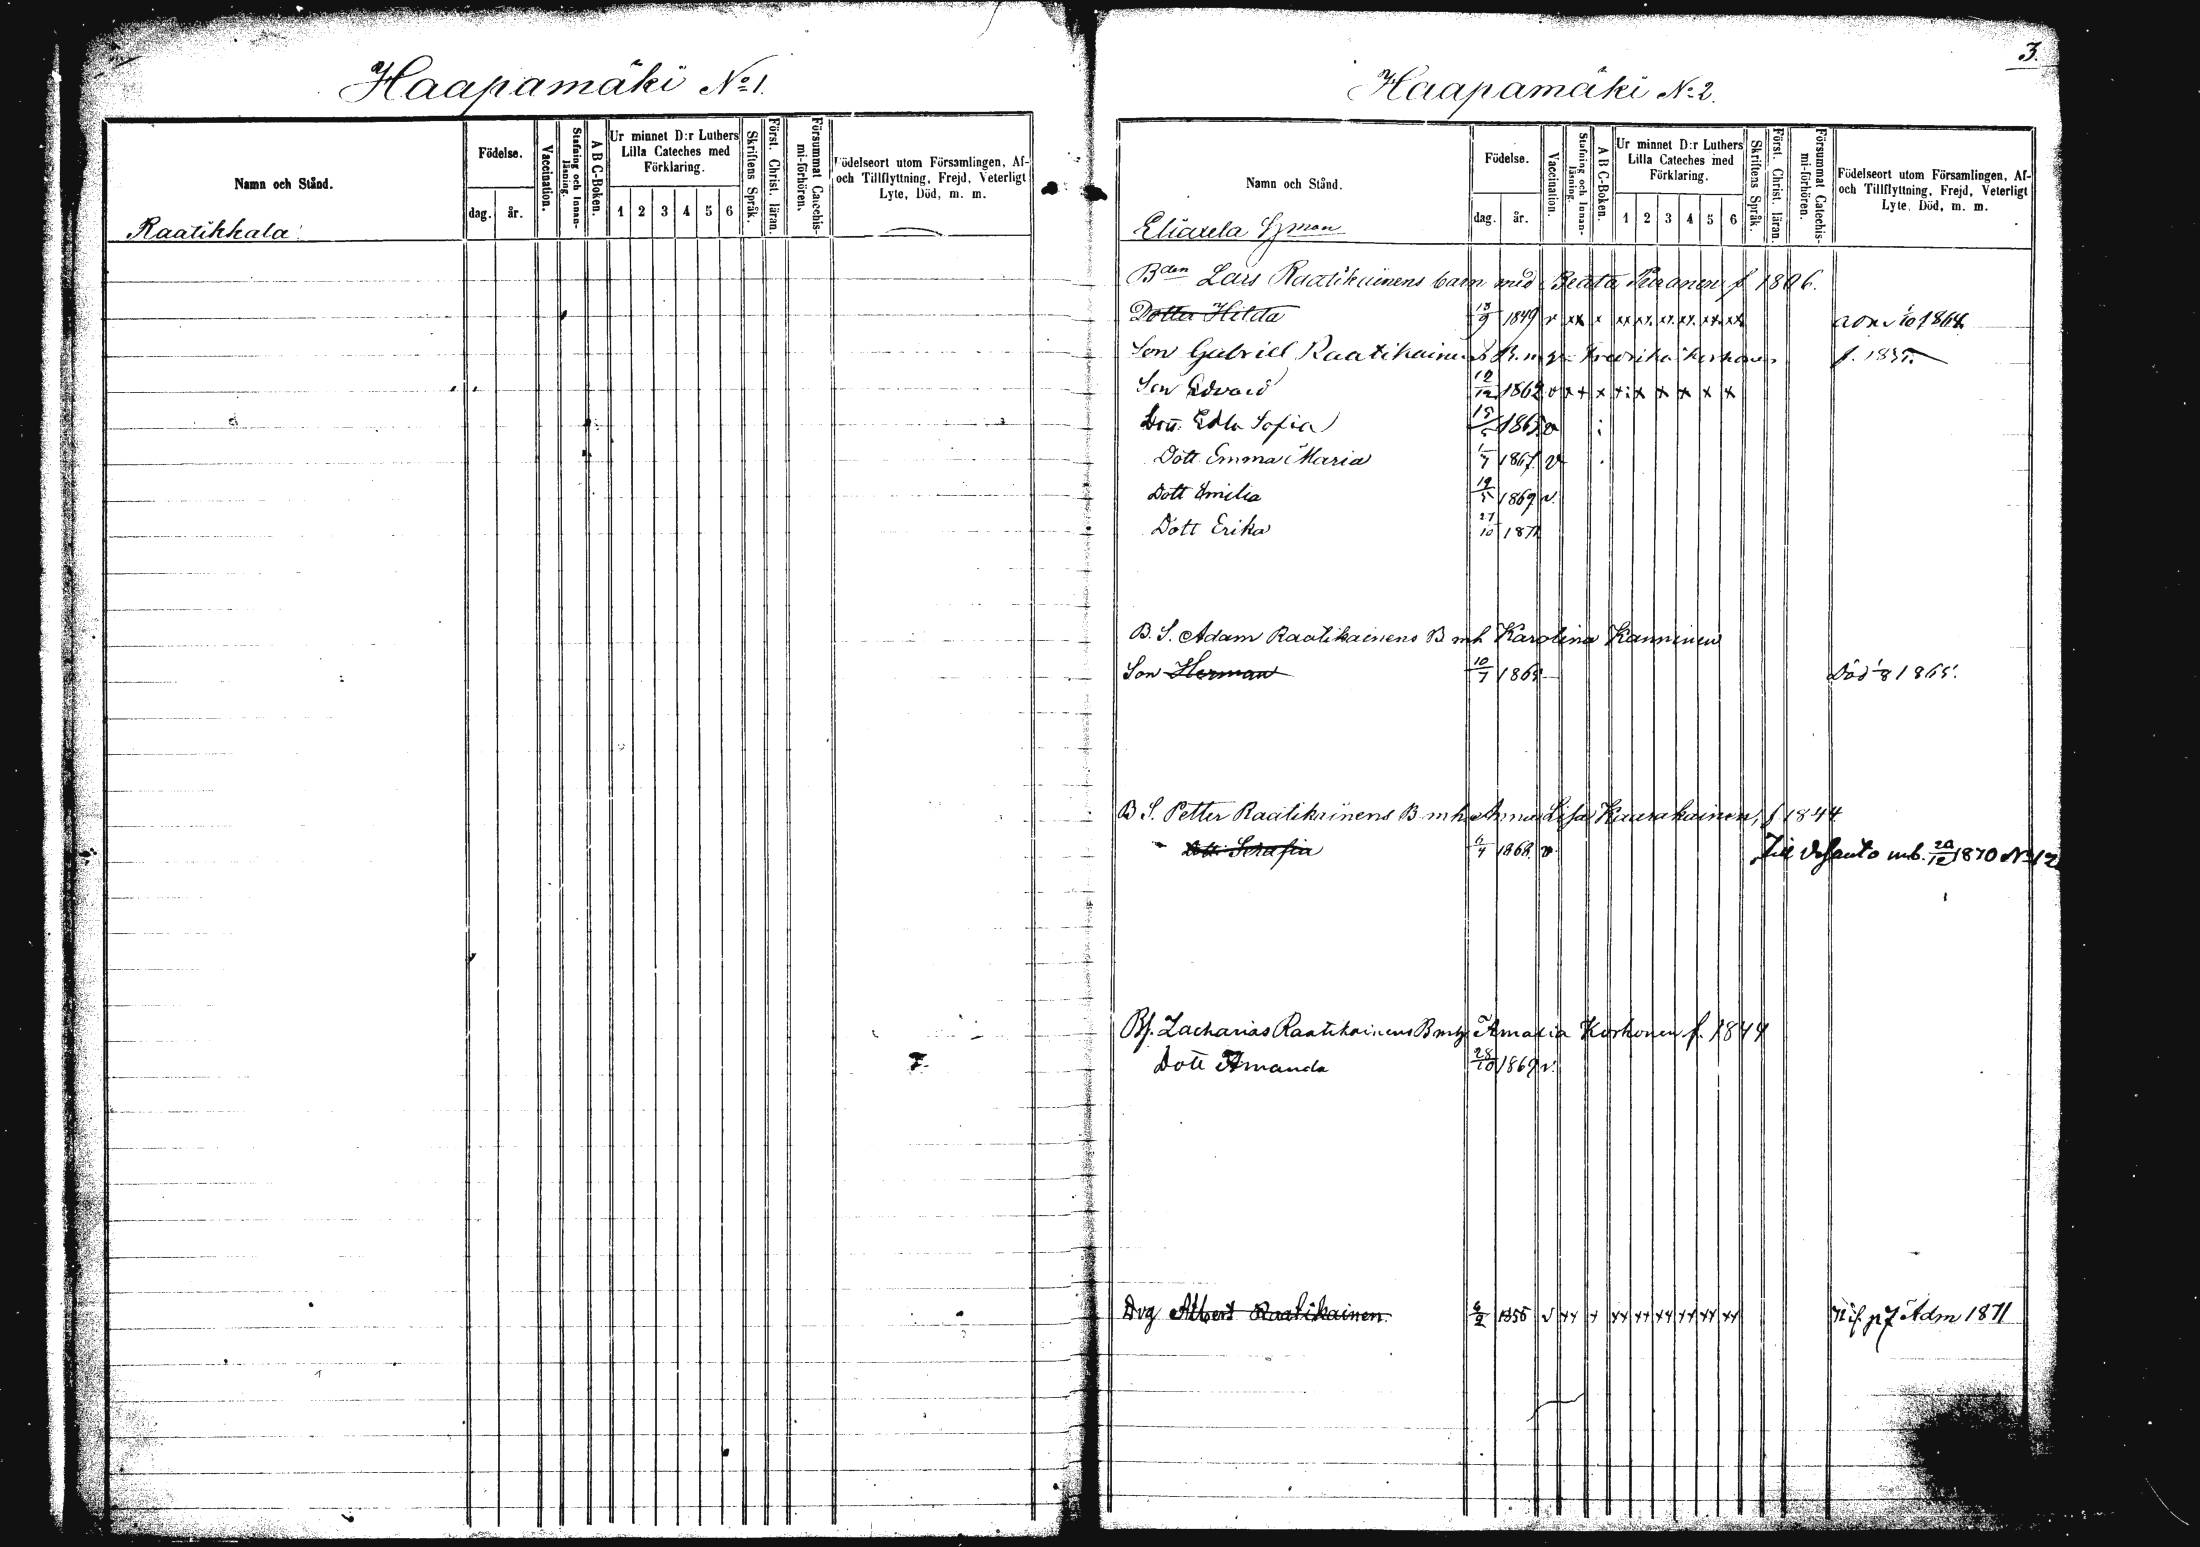 Haapamäki No 1.
Namn och Stånd.
Födelse.
dag. år.
Vaccination.
Stafning och Innanläsning.
A B C-Boken.
Ur minnet D:r Luthers Lilla Cateches med Förklaring.
1 2 3 4 5 6
Skriftens Språk.
Först. Christ. läran.
Försummat Catechismi-förhören.
Födelseort utom Församlingen, Af- och Tillflyttning, Frejd, Veterligt Lyte, Död, m. m.
Raatikkala
3.
Haapamäki No 2.
Namn och Stånd.
Födelse.
dag. år.
Vaccination.
Stafning och Innanläsning.
A B C-Boken.
Ur minnet D:r Luthers Lilla Cateches med Förklaring.
1 2 3 4 5 6
Skriftens Språk.
Först. Christ. läran.
Försummat Catechismi-förhören.
Födelseort utom Församlingen, Af- och Tillflyttning, Frejd, Veterligt Lyte, Död, m. m.
Bden Lars Raatikainens barn med Beata f 1806.
Dotter Hilda 1849 v xx x xx xx. xx. xx. xx. xx
Son Gabriel Raatikainens Fredrika f. 1835.
Son Edvard 12/12 1862 v x+ x x x x x x
Dott. Edla Sofia 1865 v
Dott Emma Maria 1/7 1867. v
Dott Emilia 19/5 1869 v.
Dott Erika 27/10 1871
B. S. Adam Raatikainens B m h Karolina Kanninen
Son Herman 10/7 1865 Död 1/8 1865.
B S. Petter Raatikainens B m h Anna Lisa Kaurakainen, f 1844
Dott. Serafia 1868. v Till mb. 20/12 1870 No 12
Bs. Zacharias Raatikainens Amalia Korhonen f. 1844
Dott Amanda 28/10 1869 v.
Drg Albert Raatikainen. 6/2 1855 v ++ + ++ ++ ++ ++ ++ ++ p 7 Adm 1871